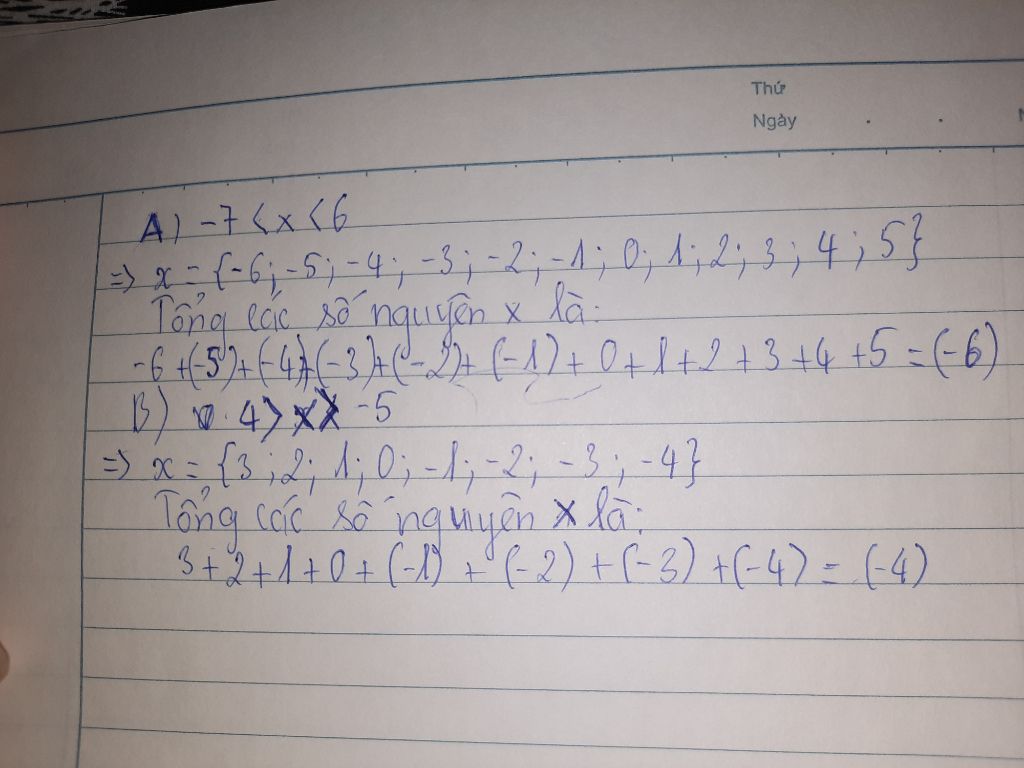 Thứ
Ngày
A) -7 < x < 6
=> x = {-6; -5; -4; -3; -2; -1; 0; 1; 2; 3; 4; 5}
Tổng các số nguyên x là:
-6 + (-5) + (-4) + (-3) + (-2) + (-1) + 0 + 1 + 2 + 3 + 4 + 5 = (-6)
B) 4 > x > -5
=> x = {3; 2; 1; 0; -1; -2; -3; -4}
Tổng các số nguyên x là:
3 + 2 + 1 + 0 + (-1) + (-2) + (-3) + (-4) = (-4)